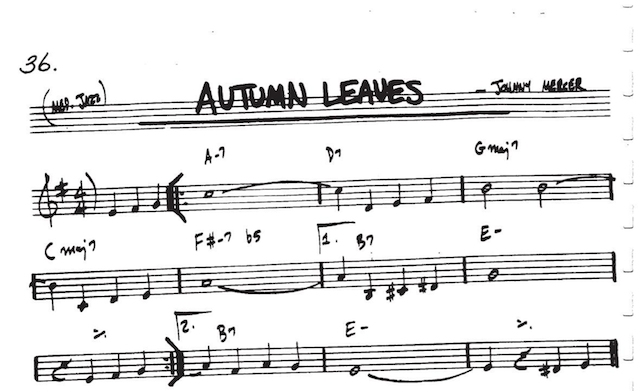 36.
(MED. JAZZ) AUTUMN LEAVES – JOHNNY MERCER
4/4 A-7 D7 Gmaj7
Cmaj7 F#-7 b5 1. B7 E-
2. B7 E-